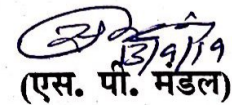 13/9/19
(एस. पी. मंडल)